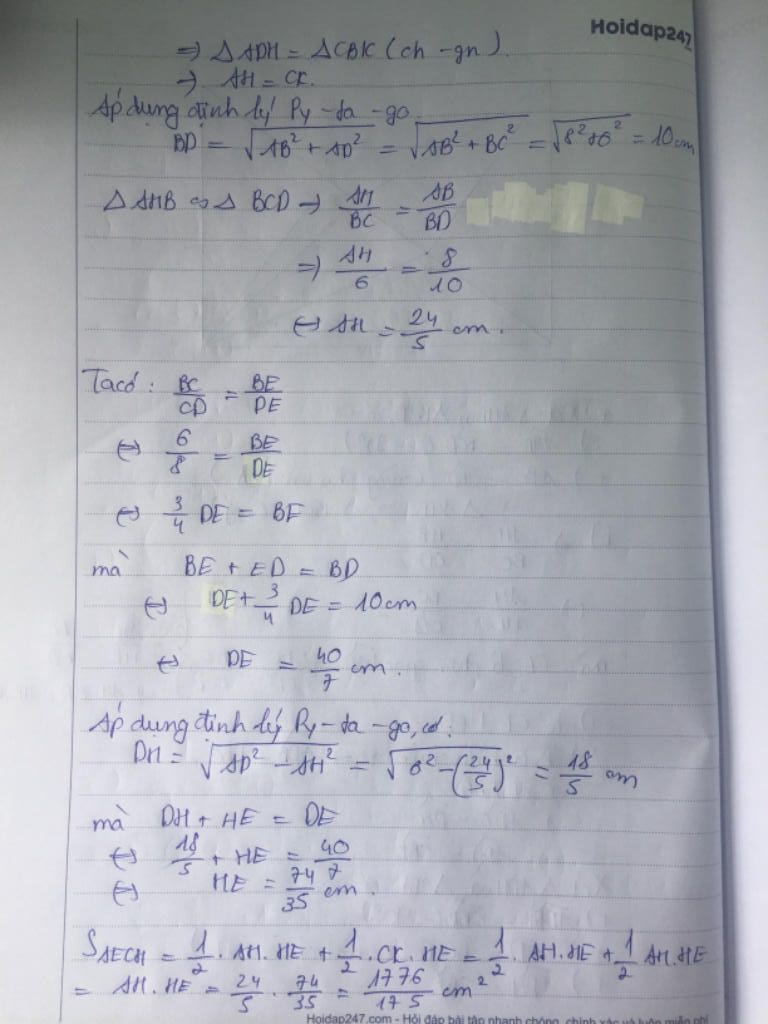 Hoidap247
=> Δ ADH = Δ CBK (ch - gn).
=> AH = CK.
Áp dụng định lý Py-ta-go.
BD = √(AB² + AD²) = √(AB² + BC²) = √(8² + 6²) = 10cm
Δ AHB ∽ Δ BCD => AH/BC = AB/BD
=> AH/6 = 8/10
<=> AH = 24/5 cm.
Ta có: BC/CD = BE/DE
<=> 6/8 = BE/DE
<=> 3/4 DE = BE
mà BE + ED = BD
<=> DE + 3/4 DE = 10cm
<=> DE = 40/7 cm.
Áp dụng định lý Py-ta-go, có:
DH = √(AD² - AH²) = √(6² - (24/5)²) = 18/5 cm
mà DH + HE = DE
<=> 18/5 + HE = 40/7
<=> HE = 74/35 cm.
S_AECH = 1/2 . AH.HE + 1/2 . CK.HE = 1/2 . AH.HE + 1/2 AH.HE
= AH.HE = 24/5 . 74/35 = 1776/175 cm²
Hoidap247.com - Hỏi đáp bài tập nhanh chóng, chính xác và luôn miễn phí